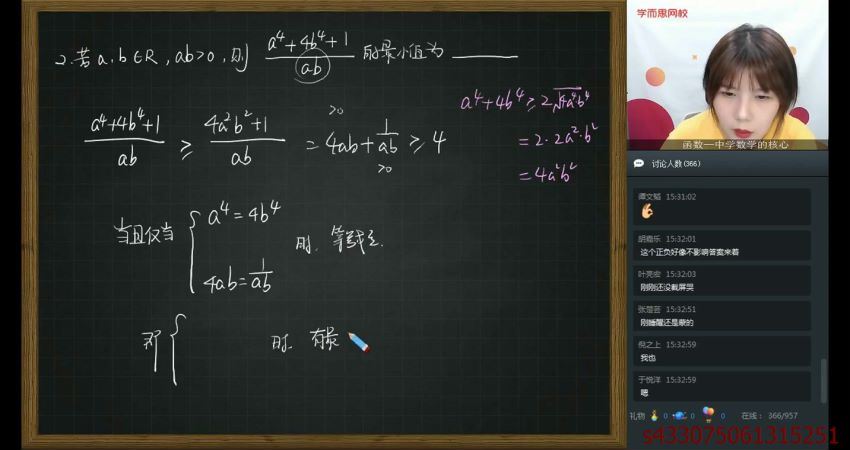 2.若a,b∈R,ab>0,则 (a⁴+4b⁴+1)/(ab) 的最小值为______
(a⁴+4b⁴+1)/(ab) ≥ (4a²b²+1)/(ab) = 4ab + 1/(ab) ≥ 4
>0
>0
a⁴+4b⁴≥2√(4a⁴b⁴)
=2·2a²·b²
=4a²b²
当且仅当 { a⁴=4b⁴
4ab=1/(ab)
时,等号成立.
即 {
时,有最
学而思网校
函数—中学数学的核心
讨论人数(366)
谭文韬 15:31:02
胡嘉乐 15:32:01
这个正负好像不影响答案来着
叶亮宏 15:32:03
刚刚还没截屏哭
张楚芸 15:32:51
刚睡醒还是蒙的
倪之上 15:32:59
我也
于悦洋 15:32:59
嗯
礼物 0 0 0 在线:366/957
s433075061315251